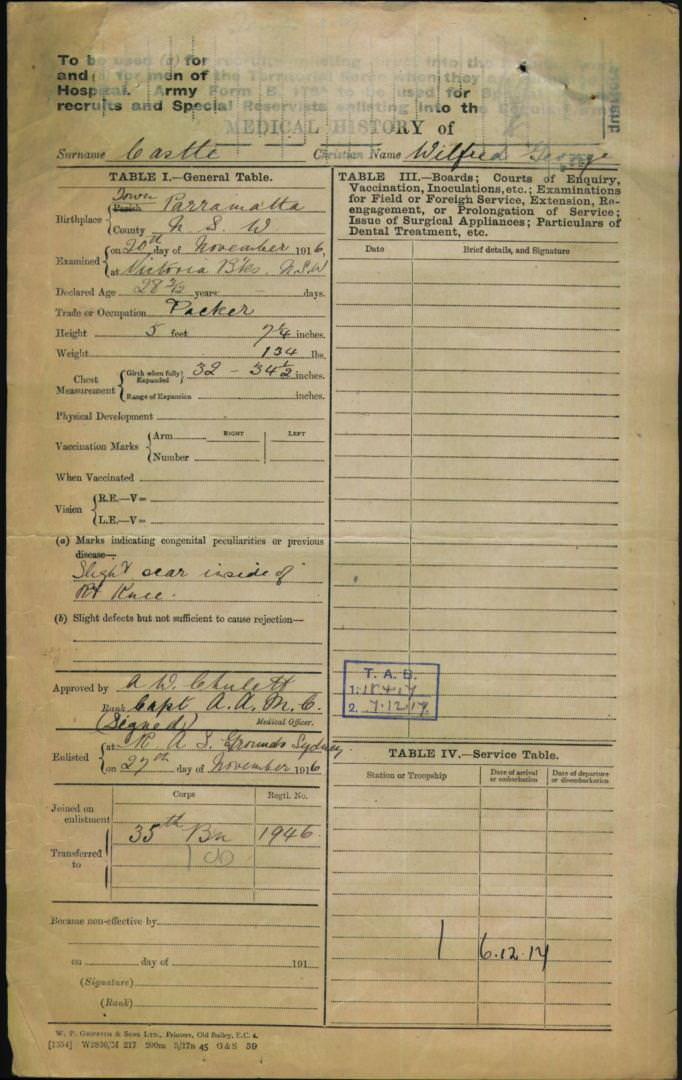 To be used (a) for
and for men of the Territorial Force when they
Hospital. Army Form B. 178 to be used for
recruits and Special Reservists enlisting into the
MEDICAL HISTORY of
Surname Castle Christian Name Wilfred George
TABLE I.—General Table.
Birthplace { Town Parish Parramatta
County N S W
Examined { on 20th day of November 1916,
at Victoria Bks. N.S.W
Declared Age 28 years days.
Trade or Occupation Packer
Height 5 feet 7¼ inches.
Weight 134 lbs.
Chest Measurement { Girth when fully Expanded } 32 - 34½ inches.
Range of Expansion inches.
Physical Development
Vaccination Marks { Arm RIGHT LEFT
Number
When Vaccinated
Vision { R.E.—V=
L.E.—V=
(a) Marks indicating congenital peculiarities or previous
disease—
Slight scar inside of
Rt Knee.
(b) Slight defects but not sufficient to cause rejection—
Approved by A W.
Rank Capt A. A. M. C.
(Signed) Medical Officer.
Enlisted { at R A S Grounds Sydney
on 27th day of November 1916
Corps Regtl. No.
Joined on enlistment
35th Bn 1946.
Transferred to
Became non-effective by
on day of 191
(Signature)
(Rank)
W. P. GRIFFITH & SONS LTD., Printers, Old Bailey, E.C. 4.
[1354] W2850/M 217 200m 3/17B 45 G & S 59
TABLE III.—Boards; Courts of Enquiry,
Vaccination, Inoculations, etc.; Examinations
for Field or Foreign Service, Extension, Re-
engagement, or Prolongation of Service;
Issue of Surgical Appliances; Particulars of
Dental Treatment, etc.
Date Brief details, and Signature
T. A. B.
1. 18.4.17
2. 7.12.17.
TABLE IV.—Service Table.
Station or Troopship Date of arrival or embarkation Date of departure or disembarkation
6.12.17